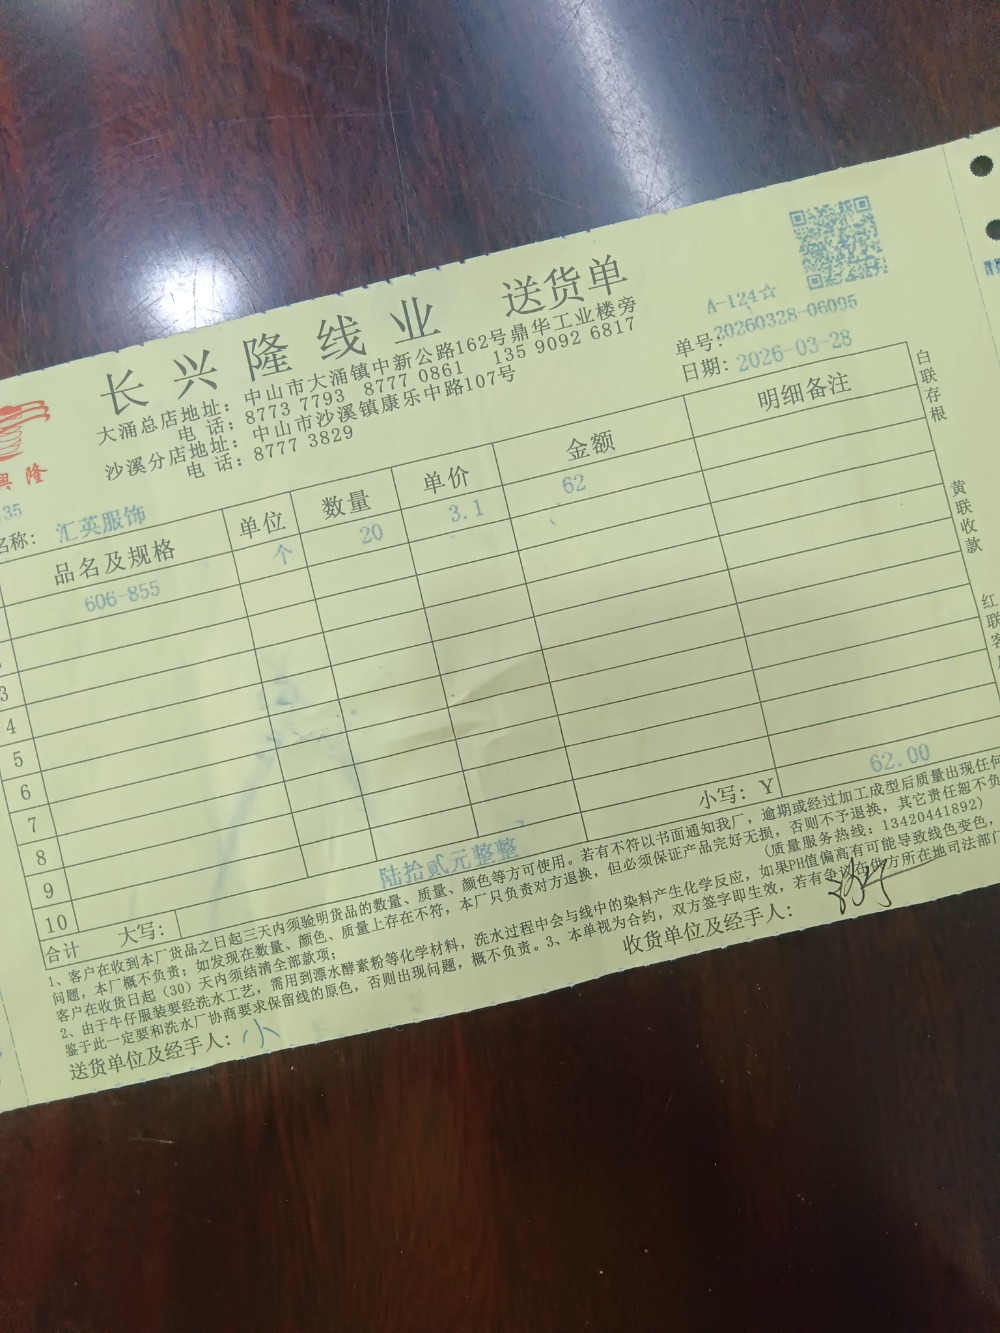 长兴隆线业 送货单
大涌总店地址：中山市大涌镇中新公路162号鼎华工业楼旁
电 话：8773 7793 8777 0861 135 9092 6817
沙溪分店地址：中山市沙溪镇康乐中路107号
电 话：8777 3829
A-124☆
单号：20260328-06095
日期：2026-03-28
興 隆
35
名称：汇英服饰
品名及规格 单位 数量 单价 金额 明细备注
606-855 个 20 3.1 62
3
4
5
6
7
8
9
10
合计 大写：陆拾贰元整整 小写：Y 62.00
1、客户在收到本厂货品之日起三天内须验明货品的数量、质量、颜色等方可使用。若有不符以书面通知我厂，逾期或经过加工成型后质量出现任何
问题，本厂概不负责；如发现在数量、颜色、质量上存在不符，本厂只负责对方退换，但必须保证产品完好无损，否则不予退换，其它责任恕不负
客户在收货日起（30）天内须结清全部款项； （质量服务热线：13420441892）
2、由于牛仔服装要经洗水工艺，需用到漂水酵素粉等化学材料，洗水过程中会与线中的染料产生化学反应，如果PH值偏高有可能导致线色变色，
鉴于此一定要和洗水厂协商要求保留线的原色，否则出现问题，概不负责。3、本单视为合约，双方签字即生效，若有争议在供方所在地司法部门
送货单位及经手人：小 收货单位及经手人：
白联存根
黄联收款
红联客